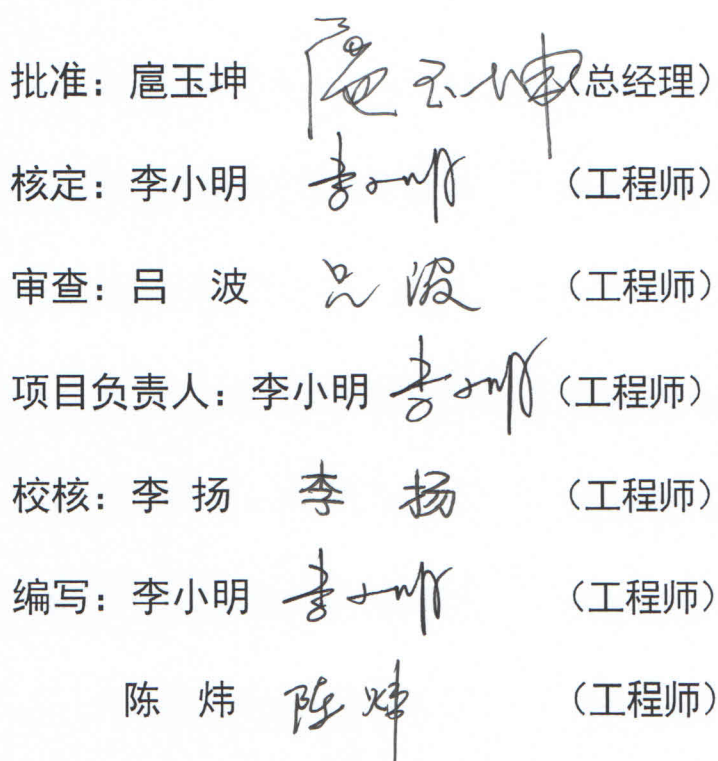 批准：扈玉坤 扈玉坤（总经理）
核定：李小明 李小明（工程师）
审查：吕 波 吕波（工程师）
项目负责人：李小明 李小明（工程师）
校核：李 扬 李扬（工程师）
编写：李小明 李小明（工程师）
陈 炜 陈炜（工程师）